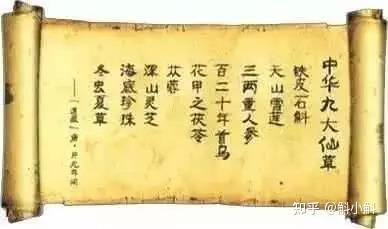 中华九大仙草
铁皮石斛
天山雪莲
三两重人参
百二十年首乌
花甲之茯苓
苁蓉
深山灵芝
海底珍珠
冬虫夏草
——「道藏」唐·开元年间
知乎 @斛小斛